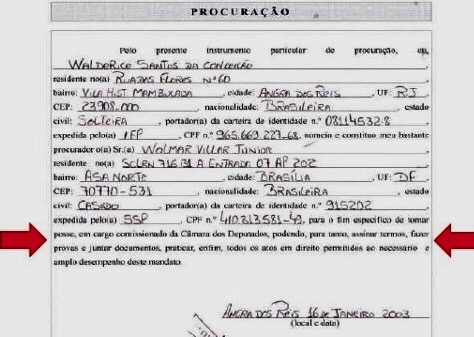 PROCURAÇÃO
Pelo presente instrumento particular de procuração, eu,
WALDERICE SANTOS DA CONCEIÇÃO,
residente no(a) RUA DAS FLORES Nº 60
bairro: VILA HIST. MAMBUCABA, cidade: ANGRA DOS REIS, UF: RJ
CEP: 23908-000, nacionalidade: BRASILEIRA, estado
civil: SOLTEIRA, portador(a) da carteira de identidade nº 08114532-8
expedida pelo(a) IFP, CPF n.º 965.669.227-68, nomeio e constituo meu bastante
procurador o(a) Sr.(a) WOLMAR VILLAR JUNIOR,
residente no(a) SCLRN 716 Bl A ENTRADA 07 AP 202
bairro: ASA NORTE, cidade: BRASÍLIA, UF: DF
CEP: 70770-531, nacionalidade: BRASILEIRA, estado
civil: CASADO, portador(a) da carteira de identidade nº 915202
expedida pelo(a) SSP, CPF nº 410.213.581-49, para o fim específico de tomar
posse, em cargo comissionado da Câmara dos Deputados, podendo, para tanto, assinar termos, fazer
provas e juntar documentos, praticar, enfim, todos os atos em direito permitidos ao necessário e
amplo desempenho deste mandato.
ANGRA DOS REIS 16 DE JANEIRO 2003
(local e data)